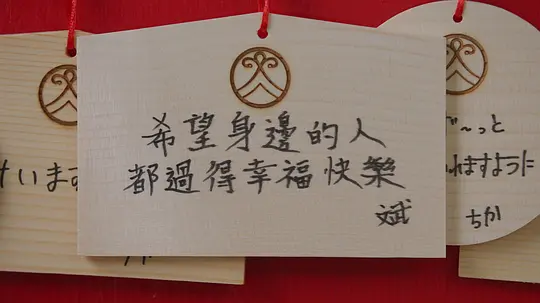 希望身邊的人
都過得幸福快樂
斌
けいます
ず〜っと
れますように
ちか